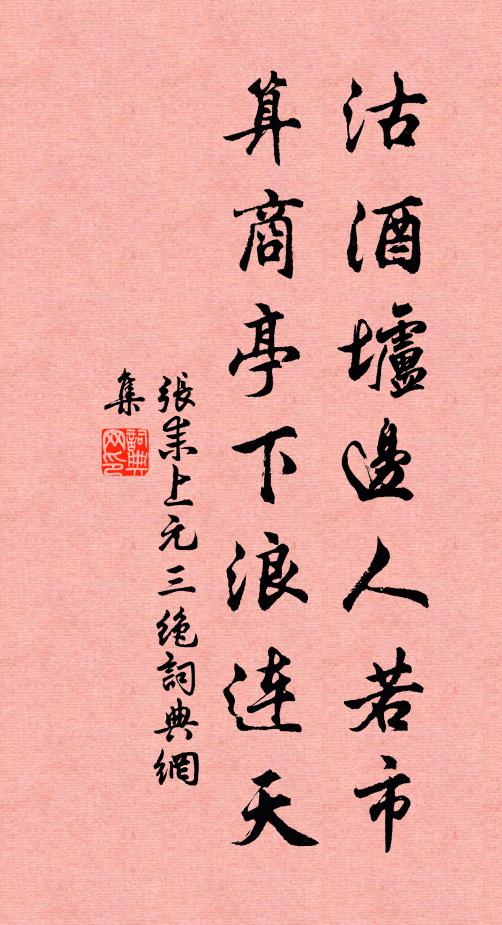 沽酒壚邊人若市
算商亭下浪連天
張耒上元三絶詞典網
集
詞典
网印